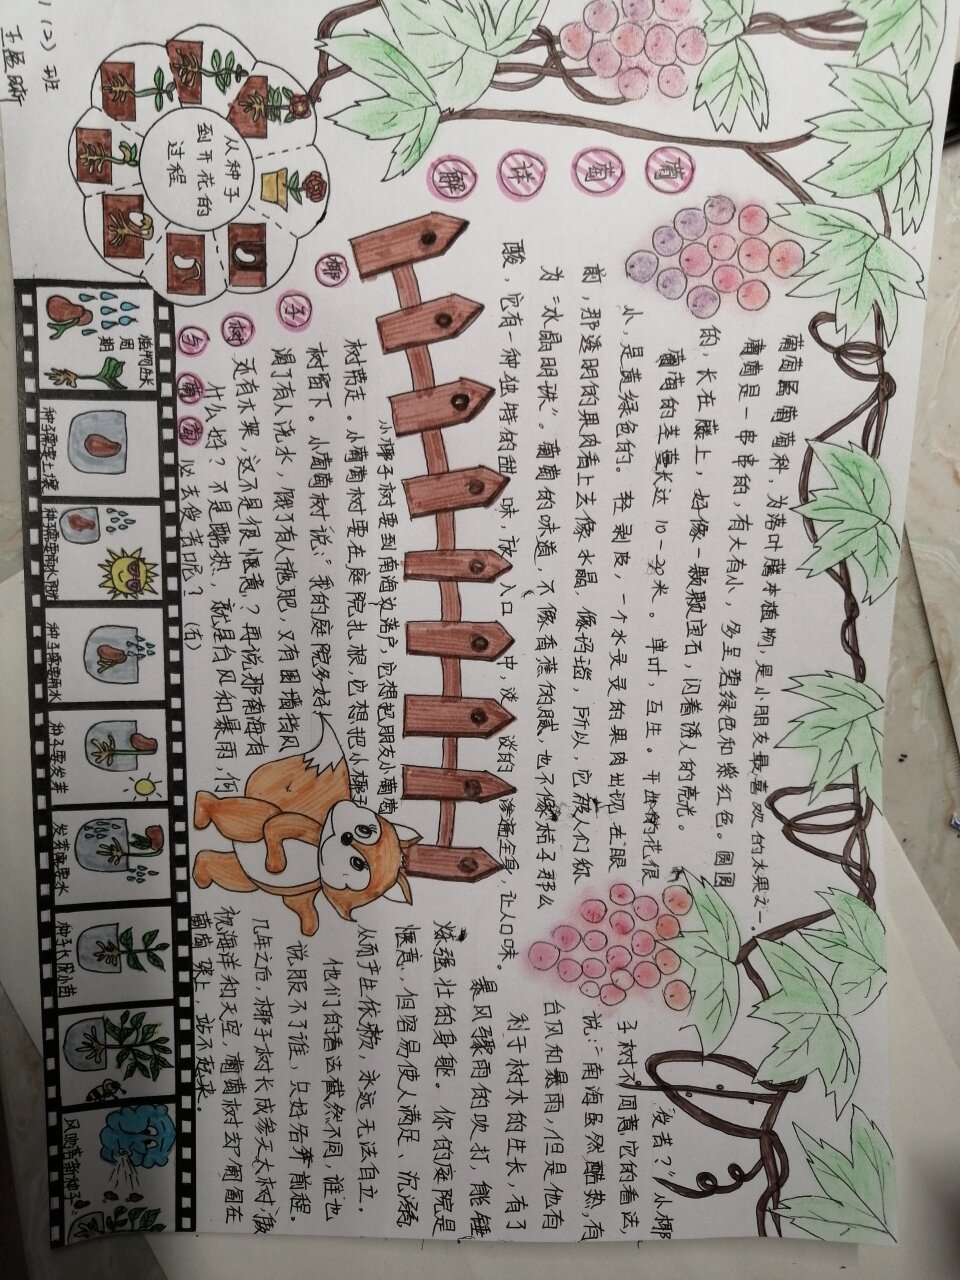 1(2)班
从种子
到开花的
过程
葡萄详解
葡萄属葡萄科，为落叶藤本植物，是小朋友最喜欢的水果之一。
葡萄是一串串的，有大有小，多呈碧绿色和紫红色。圆圆
的，长在藤上，好像一颗颗宝石，闪着诱人的亮光。
葡萄的茎蔓长达10-30米。单叶，互生。开出的花很
小，是黄绿色的。轻剥皮，一个水灵灵的果肉出现在眼
前，那透明的果肉看上去像水晶，像玛瑙，所以，它被人们称
为“水晶明珠”。葡萄的味道，不像香蕉似的腻，也不像桔子那么
酸，它有一种独特的甜味，放入口中，淡淡的渗遍全身，让人口味。
椰子树与葡萄
小椰子树要到南海边落户，它想把朋友小葡萄
树带走。小葡萄树要在庭院扎根，也想把小椰子
树留下。小葡萄树说：“我的庭院多好！
渴了有人浇水，饿了有人施肥，又有围墙挡风
还有木架，这不是很惬意？再说那南海有
什么好？不是酷热，就是台风和暴雨，何
必去受苦呢？(右)
受苦？”小椰
子树不同意它的看法，
说：“南海虽然酷热，有
台风和暴雨，但是他有
利于树木的生长，有了
暴风骤雨的吹打，能锤
炼强壮的身躯。你的庭院是
惬意，但容易使人满足、沉溺
从而产生依赖，永远无法自立。
他们的看法截然不同，谁也
说服不了谁，只好各奔前程。
几年之后，椰子树长成参天大树，俯
视海洋和天空，葡萄树却匍匐在
葡萄架上，站不起来。
植物生长
周期
种子需要土壤
种子需要雨水
种子要发芽
发芽需要水
种子长成小苗
风吹落新种子